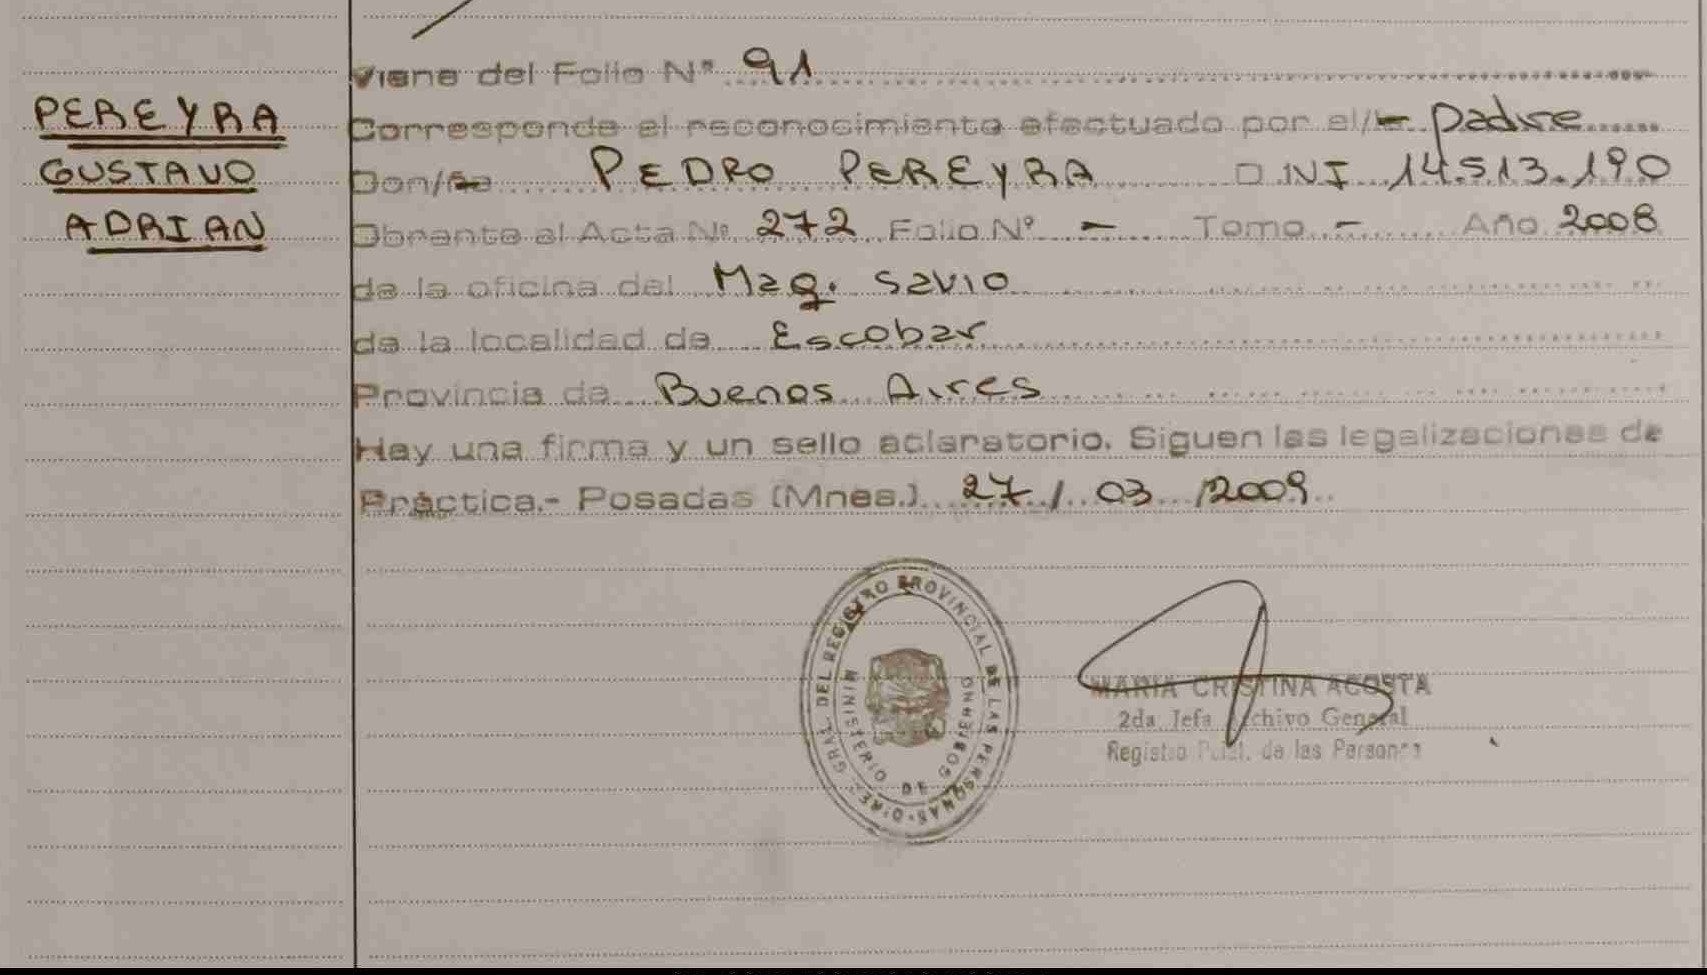 Viene del Folio Nº 91
PEREYRA
GUSTAVO
ADRIAN
Corresponde al reconocimiento efectuado por el/la padre
Don/ña PEDRO PEREYRA D.N.I 14.513.190
Obrante al Acta Nº 272 Folio Nº - Tomo - Año 2008
de la oficina del Maq. Savio
de la localidad de Escobar
Provincia de Buenos Aires
Hay una firma y un sello aclaratorio. Siguen las legalizaciones de
Práctica.- Posadas (Mnes.) 27/03/2009
GRAL. DEL REGISTRO PROVINCIAL DE LAS PERSONAS
MINISTERIO DE GOBIERNO
MARIA CRISTINA ACOSTA
2da. Jefa Archivo General
Registro Pcial. de las Personas